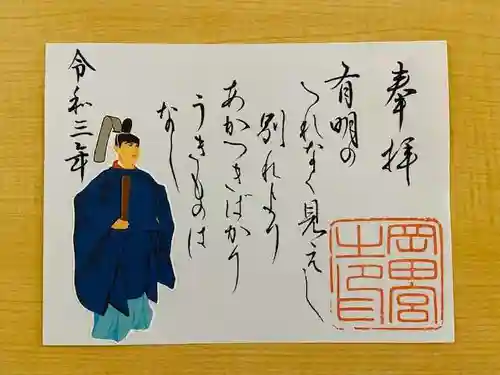 奉拝
有明の
つれなく見えし
別れより
あかつきばかり
うきものは
なし
令和三年
岡田宮